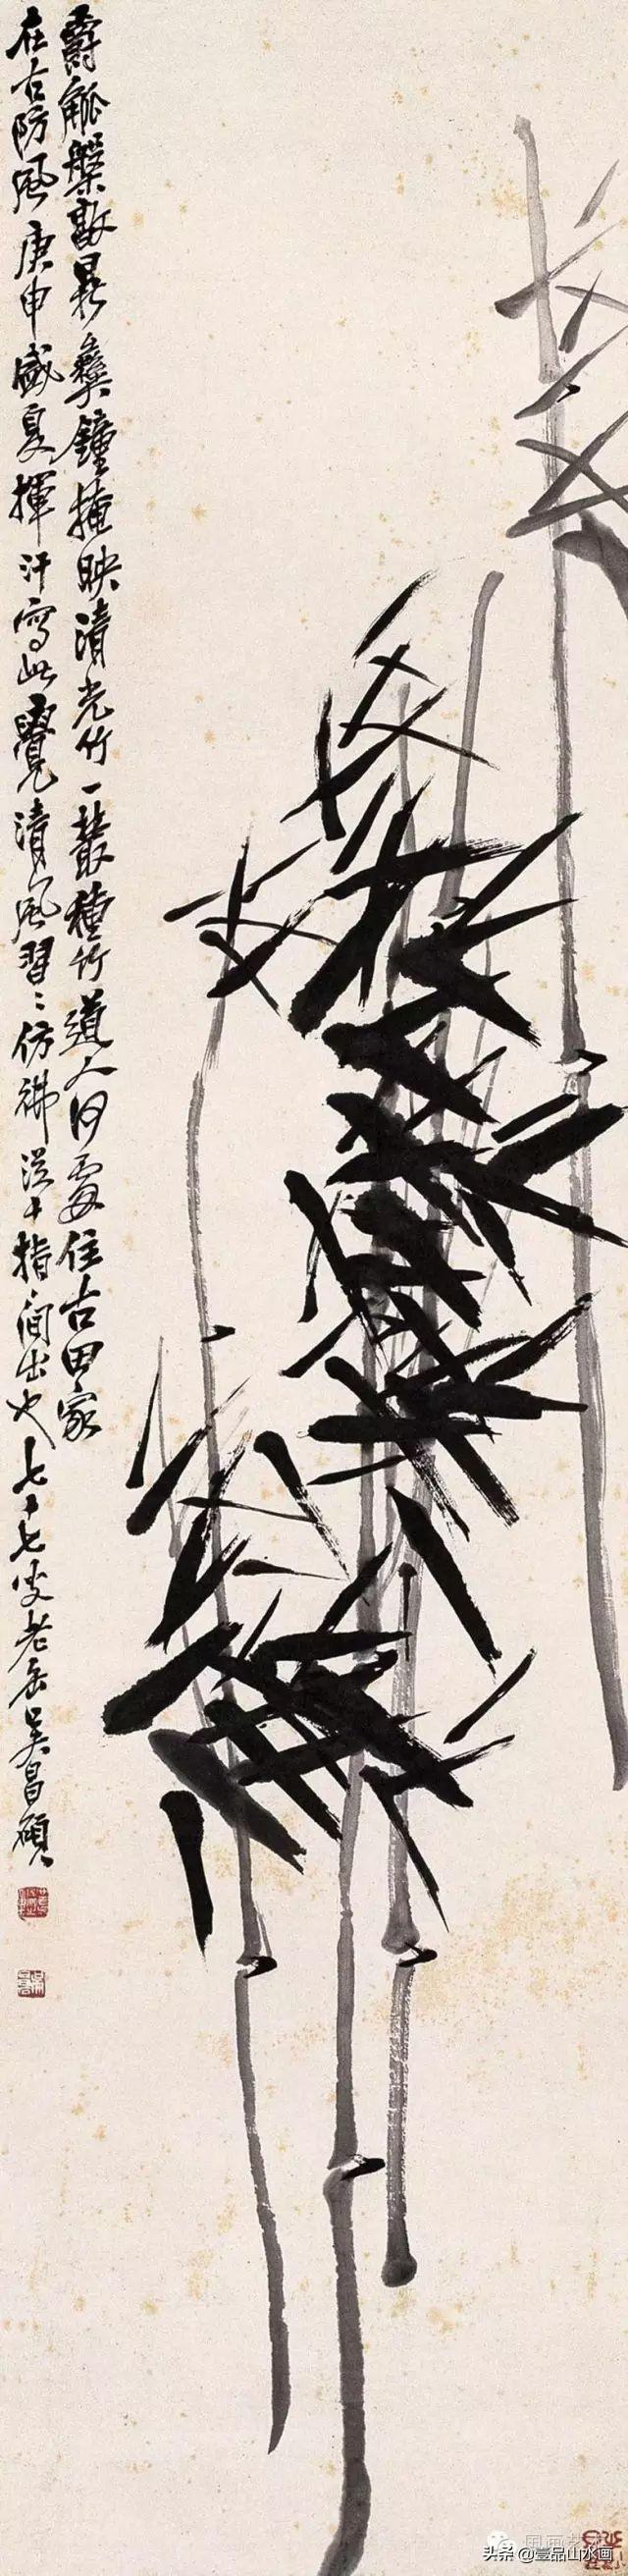 爵觚槃敦晁彝鐘掩映清光竹一叢種竹道人何處住古田家
在古防風庚申盛夏揮汗寫此覺清風習〻仿彿從十指間出也七十七叟老缶吳昌碩
頭条 @壹品山水画